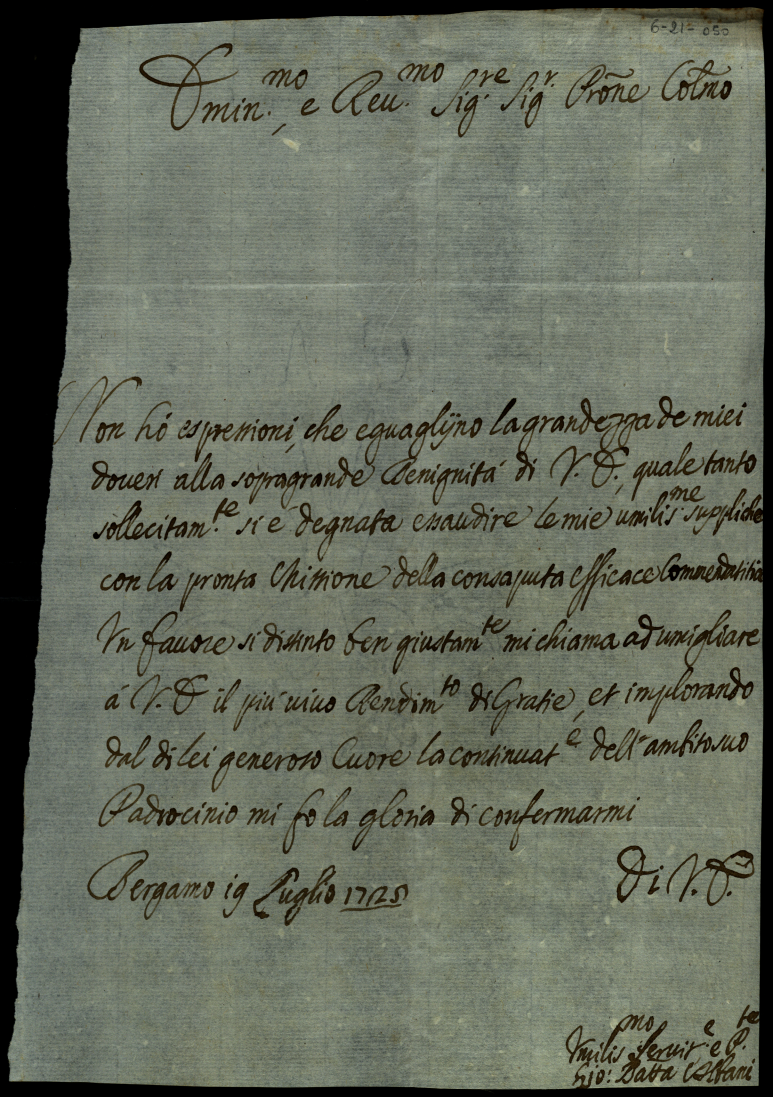 6-21-050
Emin.mo, e Reu.mo Sig.re Sig.r Prone Colmo
Non hó espressioni, che eguaglijno la grandezza de miei
doueri alla sopragrande Benignitá di V. E., quale tanto
sollecitam.te si é degnata essaudire le mie umilis.me suppliche
con la pronta Missione della consaputa efficace Commendatitia
Vn fauore si distinto ben giustam.te mi chiama ad umigliare
á V. E il piú uiuo Rendim.to di Gratie, et implorando
dal di lei generoso Cuore la continuat.e dell'ambito suo
Padrocinio mi fo la gloria di confermarmi
Bergamo 19 Luglio 1725
Di V. E.
Vmilis.mo Seruit.e e P.te
Gio: Batta Albani